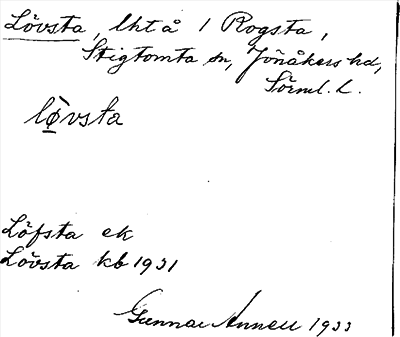 Lövsta, lht å 1 Rogsta,
Stigtomta sn, Jönåkers hd,
Sörml. L.
lø̀vsta
Löfsta ek
Lövsta kb 1931
Gunnar Annell 1933